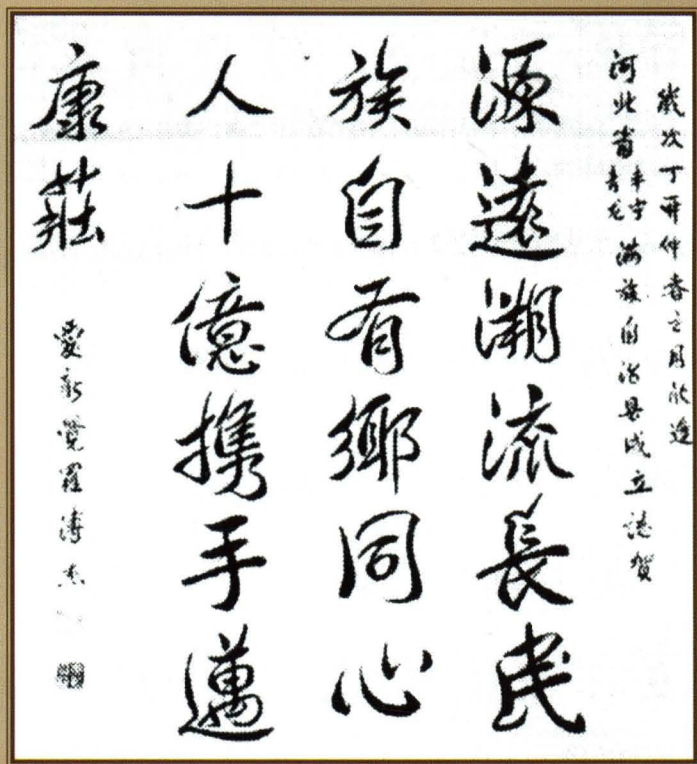 歲次丁卯仲春之月欣逢
河北省丰宁青龙滿族自治县成立誌賀
源遠溯流長民
族自有鄉同心
人十億携手邁
康莊
愛新覺羅溥杰